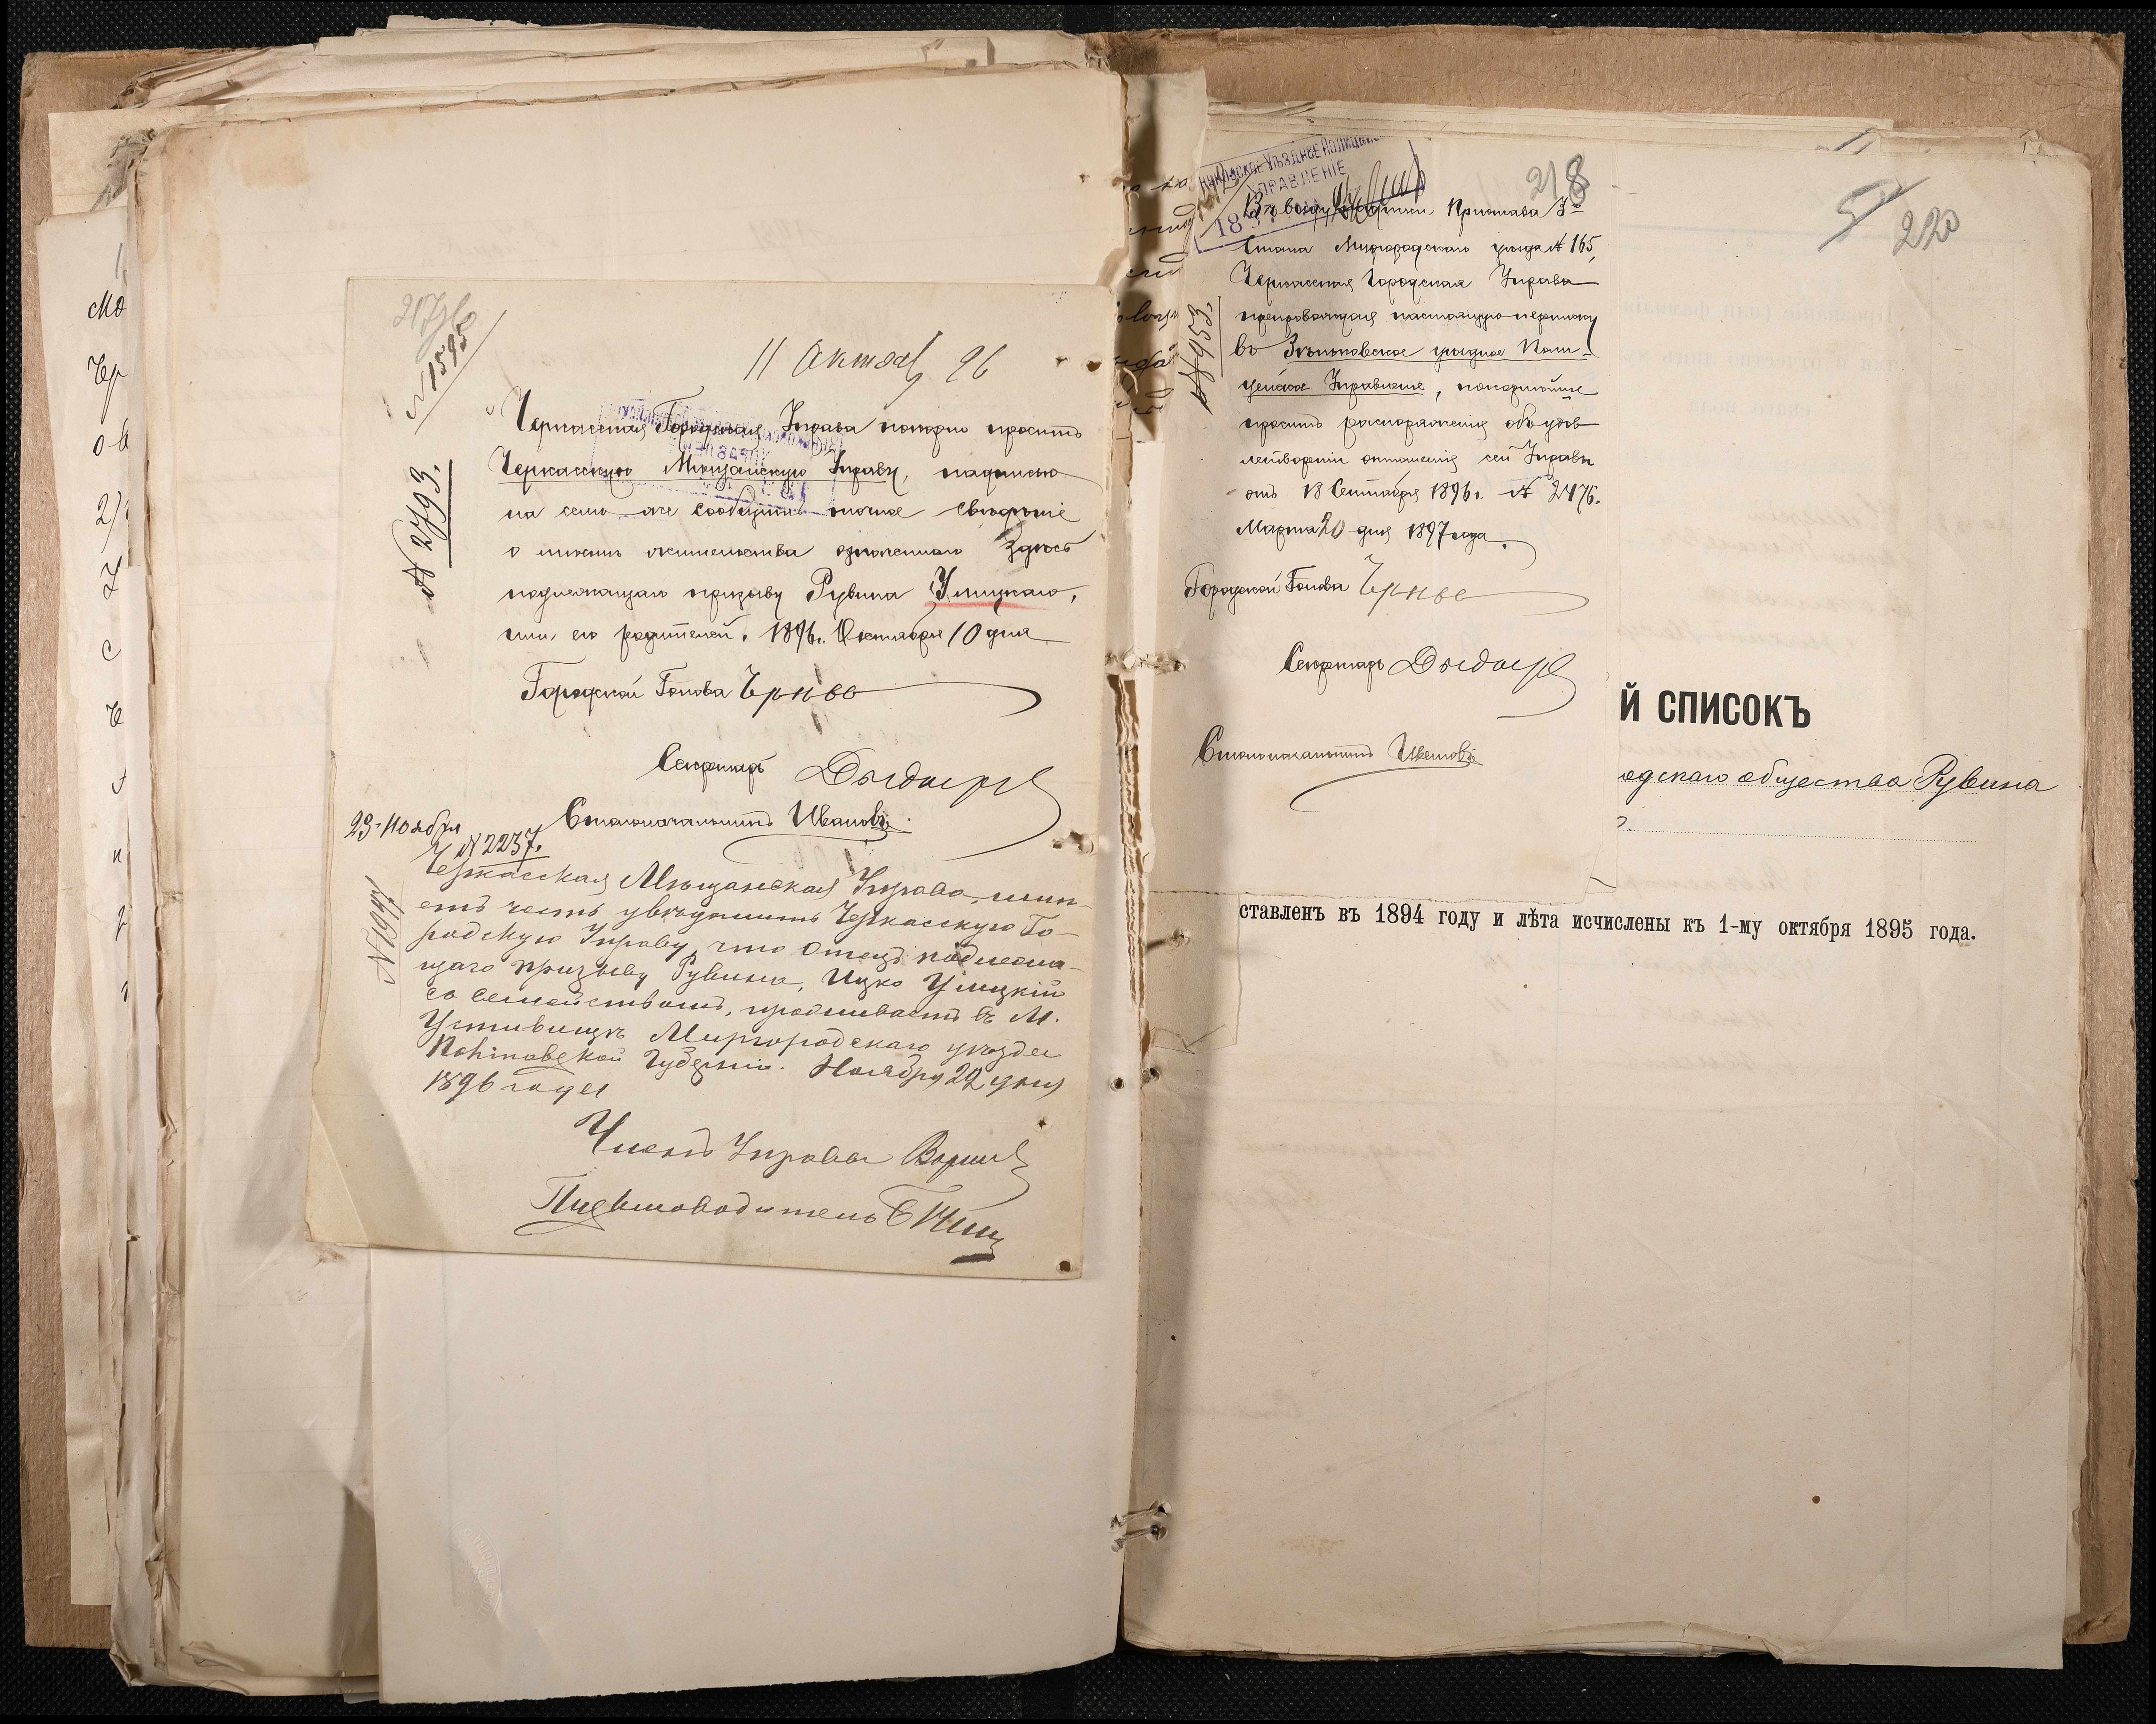 217 об
№ 1595
11 Октяб 96
№ 2793.
Черкасская Городская Управа покорно проситъ
Черкасскую Мѣщанскую Управу, надписью
на семъ же сообщить точное свѣдѣніе
о мѣстѣ жительства означеннаго здѣсь
подлежащаго призыву Рувина Улицкаго,
или его родителей. 1896 г. Октября 10 дня
Городской Голова
Секретарь
Столоначальникъ Ивановъ
23 Ноября
№ 2237.
№ 1997
Черкасская Мѣщанская Управа, имѣ-
етъ честь увѣдомить Черкасскую Го-
родскую Управу, что отецъ подлежа-
щаго призыву Рувина, Ицко Улицкій
со семействомъ, проживаетъ въ М.
Устивицѣ Миргородскаго уѣзда
Полтавской Губерніи. Ноября 22 дня
1896 года
Членъ Управы
Письмоводитель
Мо
Чер
2)
218
Уѣздное Полицейск
УПРАВЛЕНІЕ
18
Въ виду Пристава 3го
Стана Миргородскаго уѣзда № 165,
Черкасская Городская Управа
препровождая настоящую переписку
въ Зѣньковское уѣздное Поли-
цейское Управленіе, покорнѣйше
проситъ распоряженія объ удов
летвореніи отношенія сей Управы
отъ 18 Сентября 1896 г. № 2476.
Марта 20 дня 1897 года.
Городской Голова
Секретарь
Столоначальникъ Ивановъ
220
Й СПИСОКЪ
одскаго общества Рувина
ставленъ въ 1894 году и лѣта исчислены къ 1-му октября 1895 года.